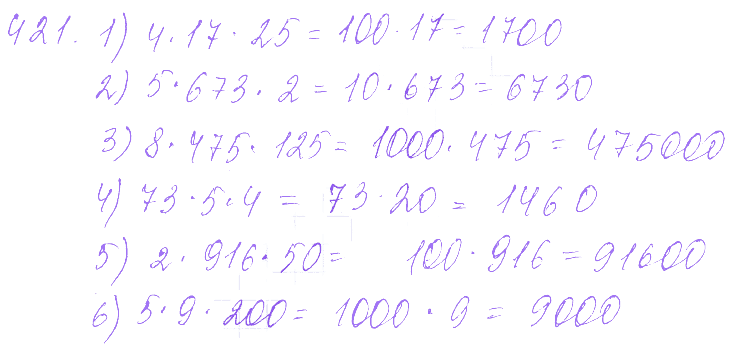 421. 1) 4 · 17 · 25 = 100 · 17 = 1700
2) 5 · 673 · 2 = 10 · 673 = 6730
3) 8 · 475 · 125 = 1000 · 475 = 475000
4) 73 · 5 · 4 = 73 · 20 = 1460
5) 2 · 916 · 50 = 100 · 916 = 91600
6) 5 · 9 · 200 = 1000 · 9 = 9000